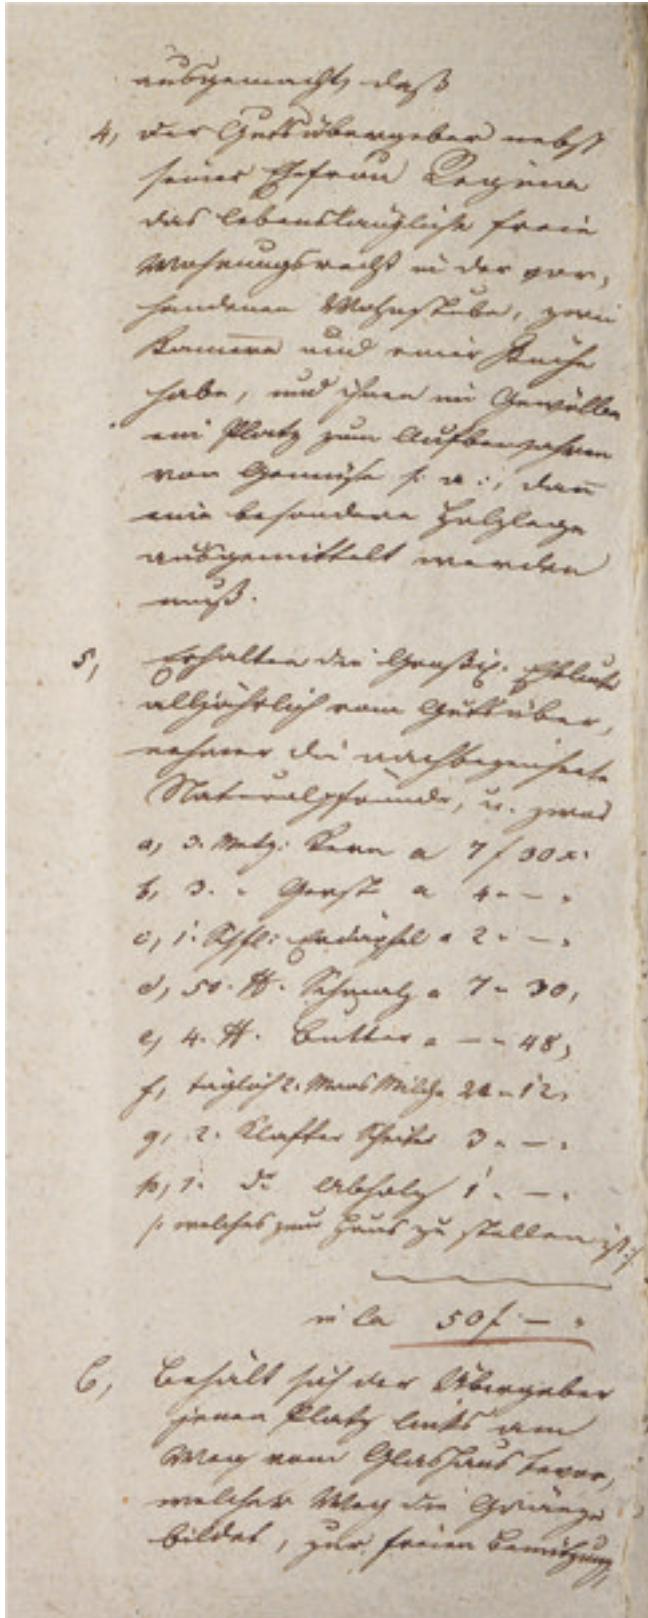 ausgemacht, daß
4, der Gutsübergeber nebst
seiner Ehefrau Regina
das lebenslängliche freie
Wohnungsrecht in der vor,
handenen Wohnstube, zwei
Kammern und einer Küche
habe, und ihnen im Gewölbe
ein Platz zum Aufbewahren
von Gemüse s: a:, dann
eine besondere Holzlege
ausgemittelt werden
muß.
5, Erhalten die Eheleute
alljährlich vom Gutsüber,
nehmer die nachbezeichnete
Naturalpfründe, u. zwar
a, 3. Metz: Kern a 7 f 30 x:
b, 3. " Gerst a 4 " – "
c, 1. Schfl: Erdäpfel a 2 " – "
d, 50. ℔. Schmalz a 7 " 30,
e, 4. ℔. Butter a – " 48,
f, täglich 2. Maas Milch 24 " 12,
g, 2. Klafter Scheiter 3 " – "
h, 1. do Abholz 1 " – "
/: welches zum Haus zu stellen ist :/
in la 50 f – "
6, Behält sich der Übergeber
jenen Platz links am
Weg vom Glashaus bevor,
welcher Weg die Gränze
bildet, zur freien Benützung